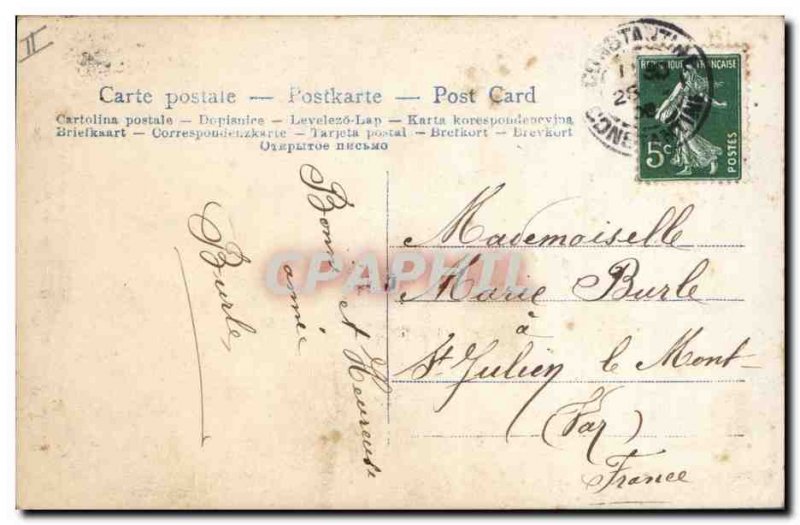 II
Carte postale — Postkarte — Post Card
Cartolina postale — Dopisnice — Levelező-Lap — Karta korespondencyjna
Briefkaart — Correspondenzkarte — Tarjeta postal — Brefkort — Brevkort
Открытое письмо
CONSTANTINE
CONSTANTINE
REPUBLIQUE FRANÇAISE
5c
POSTES
Bonne et Heureuse
année
Burle
Mademoiselle
Marie Burle
à
St Julien le Mont-
(Var)
France
CPAPHIL